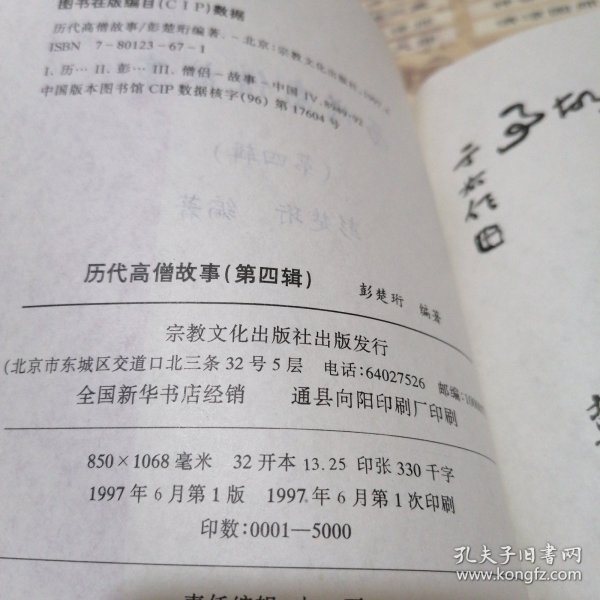 图书在版编目(CIP)数据
历代高僧故事/彭楚珩编著.-北京:宗教文化出版社,1997.
ISBN 7-80123-67-1
I.历… II.彭… III.僧侣-故事-中国 IV.B949-92
中国版本图书馆CIP数据核字(96)第17604号
(第四辑)
彭楚珩 编著
历代高僧故事(第四辑)
彭楚珩 编著
宗教文化出版社出版发行
(北京市东城区交道口北三条32号5层 电话:64027526 邮编:
全国新华书店经销 通县向阳印刷厂印刷
850×1068毫米 32开本 13.25印张 330千字
1997年6月第1版 1997年6月第1次印刷
印数:0001—5000
责任编辑
孔夫子旧书网
www.kongfz.com